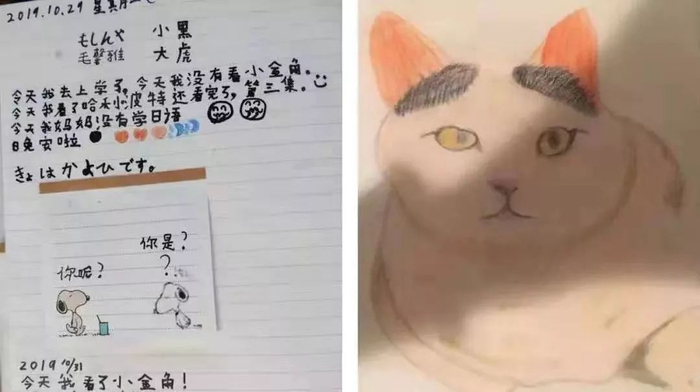 2019.10.29 星期二
もしんや 小黑
毛馨雅 大虎
今天我去上学了,今天我没有看小金角。
今天我看了哈利波特还看完了,第三集。
今天我妈妈没有学日语
日晚安啦
きょはかよひです。
你是?
?
你呢?
2019 10/31
今天我看了小金角!